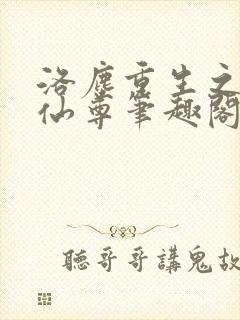 洛塵重生之
仙尊筆趣閣
聽哥哥講鬼故